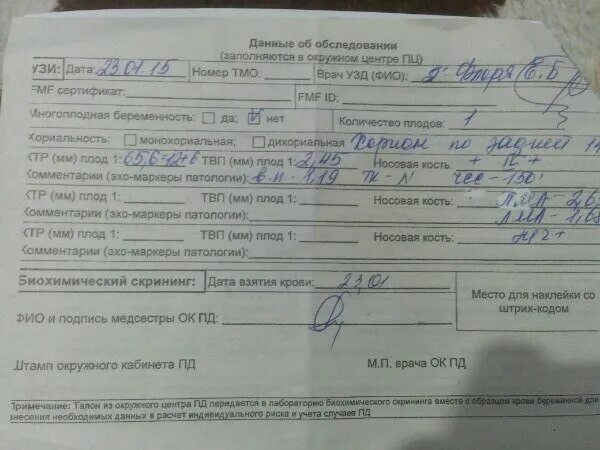 Данные об обследовании
(заполняются в окружном центре ПЦ)
УЗИ: Дата: 23.01.15 Номер ТМО: Врач УЗД (ФИО):
FMF сертификат: FMF ID:
Многоплодная беременность: да; нет Количество плодов: 1
Хориальность: монохориальная; дихориальная Хорион по задней
КТР (мм) плод 1: 65,6=12+6 ТВП (мм) плод 1: 2,45 Носовая кость: +
Комментарии (эхо-маркеры патологии): в.п - 1,19 ТК - N ЧСС - 150
КТР (мм) плод 1: ТВП (мм) плод 1: Носовая кость: ЛМА - 2,6
Комментарии (эхо-маркеры патологии): ПМА - 1,68
КТР (мм) плод 1: ТВП (мм) плод 1: Носовая кость:
Комментарии (эхо-маркеры патологии):
Биохимический скрининг: Дата взятия крови: 23.01
Место для наклейки со
штрих-кодом
ФИО и подпись медсестры ОК ПД:
Штамп окружного кабинета ПД М.П. врача ОК ПД
Примечание: Талон из окружного центра ПД передается в лабораторию биохимического скрининга вместе с образцом крови беременной для
внесения необходимых данных и расчет индивидуального риска и учета случаев ПД